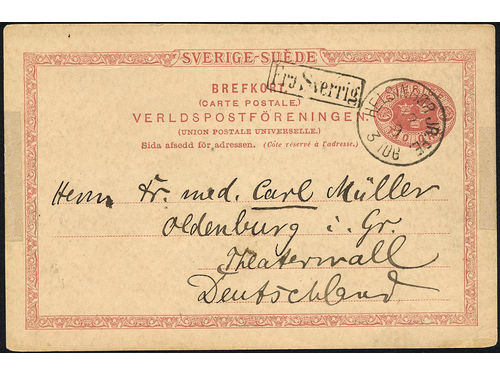 SVERIGE-SUÈDE
BREFKORT
Fra Sverrig
(CARTE POSTALE.)
VERLDSPOSTFÖRENINGEN
(UNION POSTALE UNIVERSELLE.)
Sida afsedd för adressen. (Côté réservé à l'adresse.)
Herrn Dr. med. Carl Müller
Oldenburg i. Gr.
Theaterwall
Deutschland